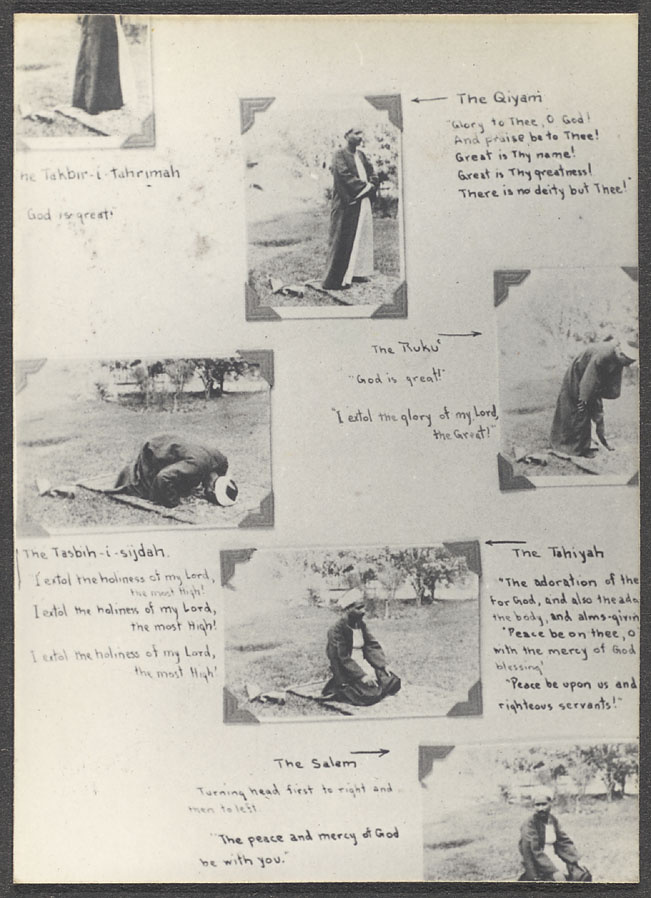 he Takbir-i-tahrimah
God is great!"
The Qiyam
"Glory to Thee, O God!
And praise be to Thee!
Great is Thy name!
Great is Thy greatness!
There is no deity but Thee!"
The Ruku'
"God is great!"
"I extol the glory of my Lord,
the Great!"
The Tasbih-i-sijdah.
"I extol the holiness of my Lord,
the most High!
I extol the holiness of my Lord,
the most High!
I extol the holiness of my Lord,
the most High!
The Tahiyah
"The adoration of the
for God, and also the ado
the body, and alms-givin
"Peace be on thee, O
with the mercy of God
blessing!
"Peace be upon us and
righteous servants!"
The Salem
Turning head first to right and
then to left.
"The peace and mercy of God
be with you."